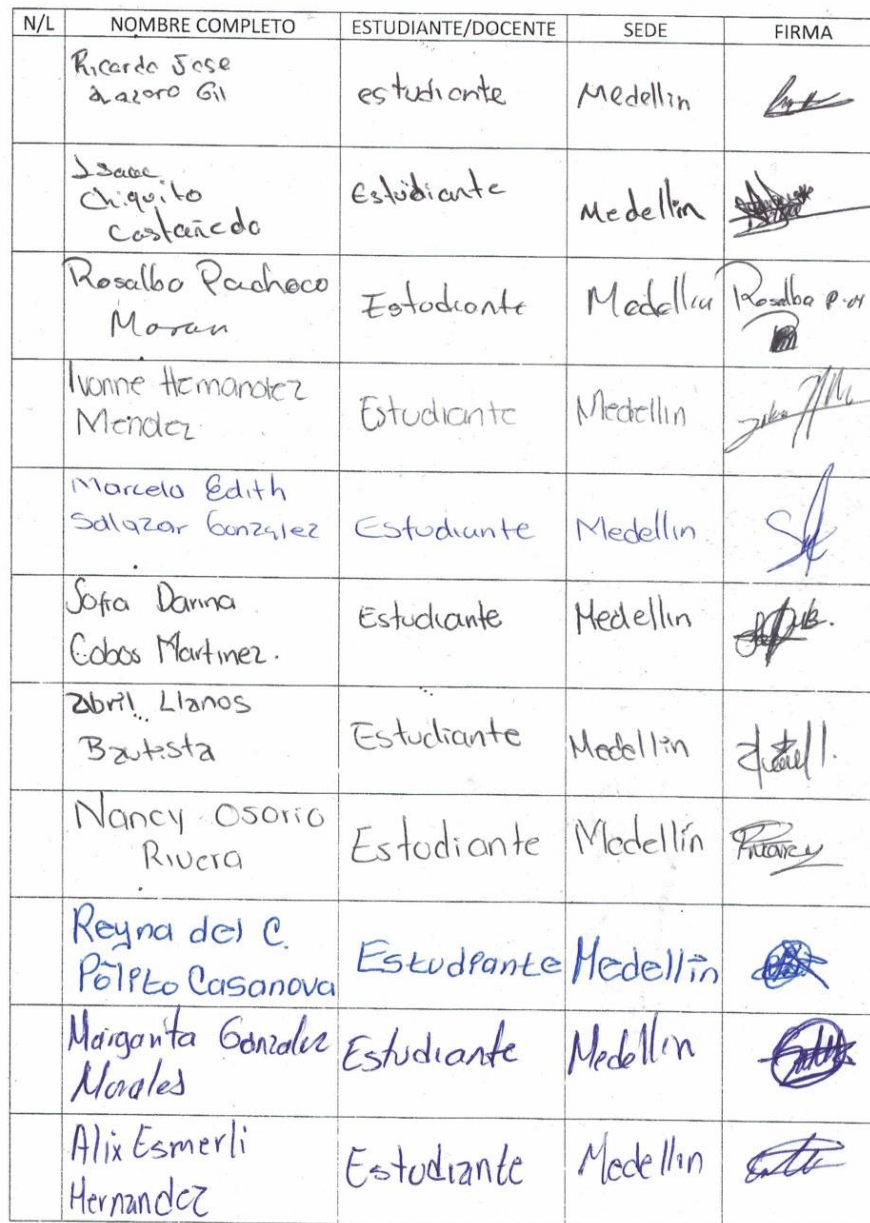 N/L NOMBRE COMPLETO ESTUDIANTE/DOCENTE SEDE FIRMA
Ricardo Jose
Lazaro Gil estudiante Medellin
Isaac
Chiquito
Castañeda Estudiante Medellin
Rosalba Pacheco
Moran Estudiante Medellin Rosalba P.M
Ivonne Hernandez
Mendez Estudiante Medellin
Marcela Edith
Salazar Gonzalez Estudiante Medellin
Sofia Darina
Cobos Martinez. Estudiante Medellin
Abril Llanos
Bautista Estudiante Medellin
Nancy Osorio
Rivera Estudiante Medellín
Reyna del C.
Pólito Casanova Estudiante Medellin
Margarita Gonzalez
Morales Estudiante Medellin
Alix Esmerli
Hernandez Estudiante Medellin